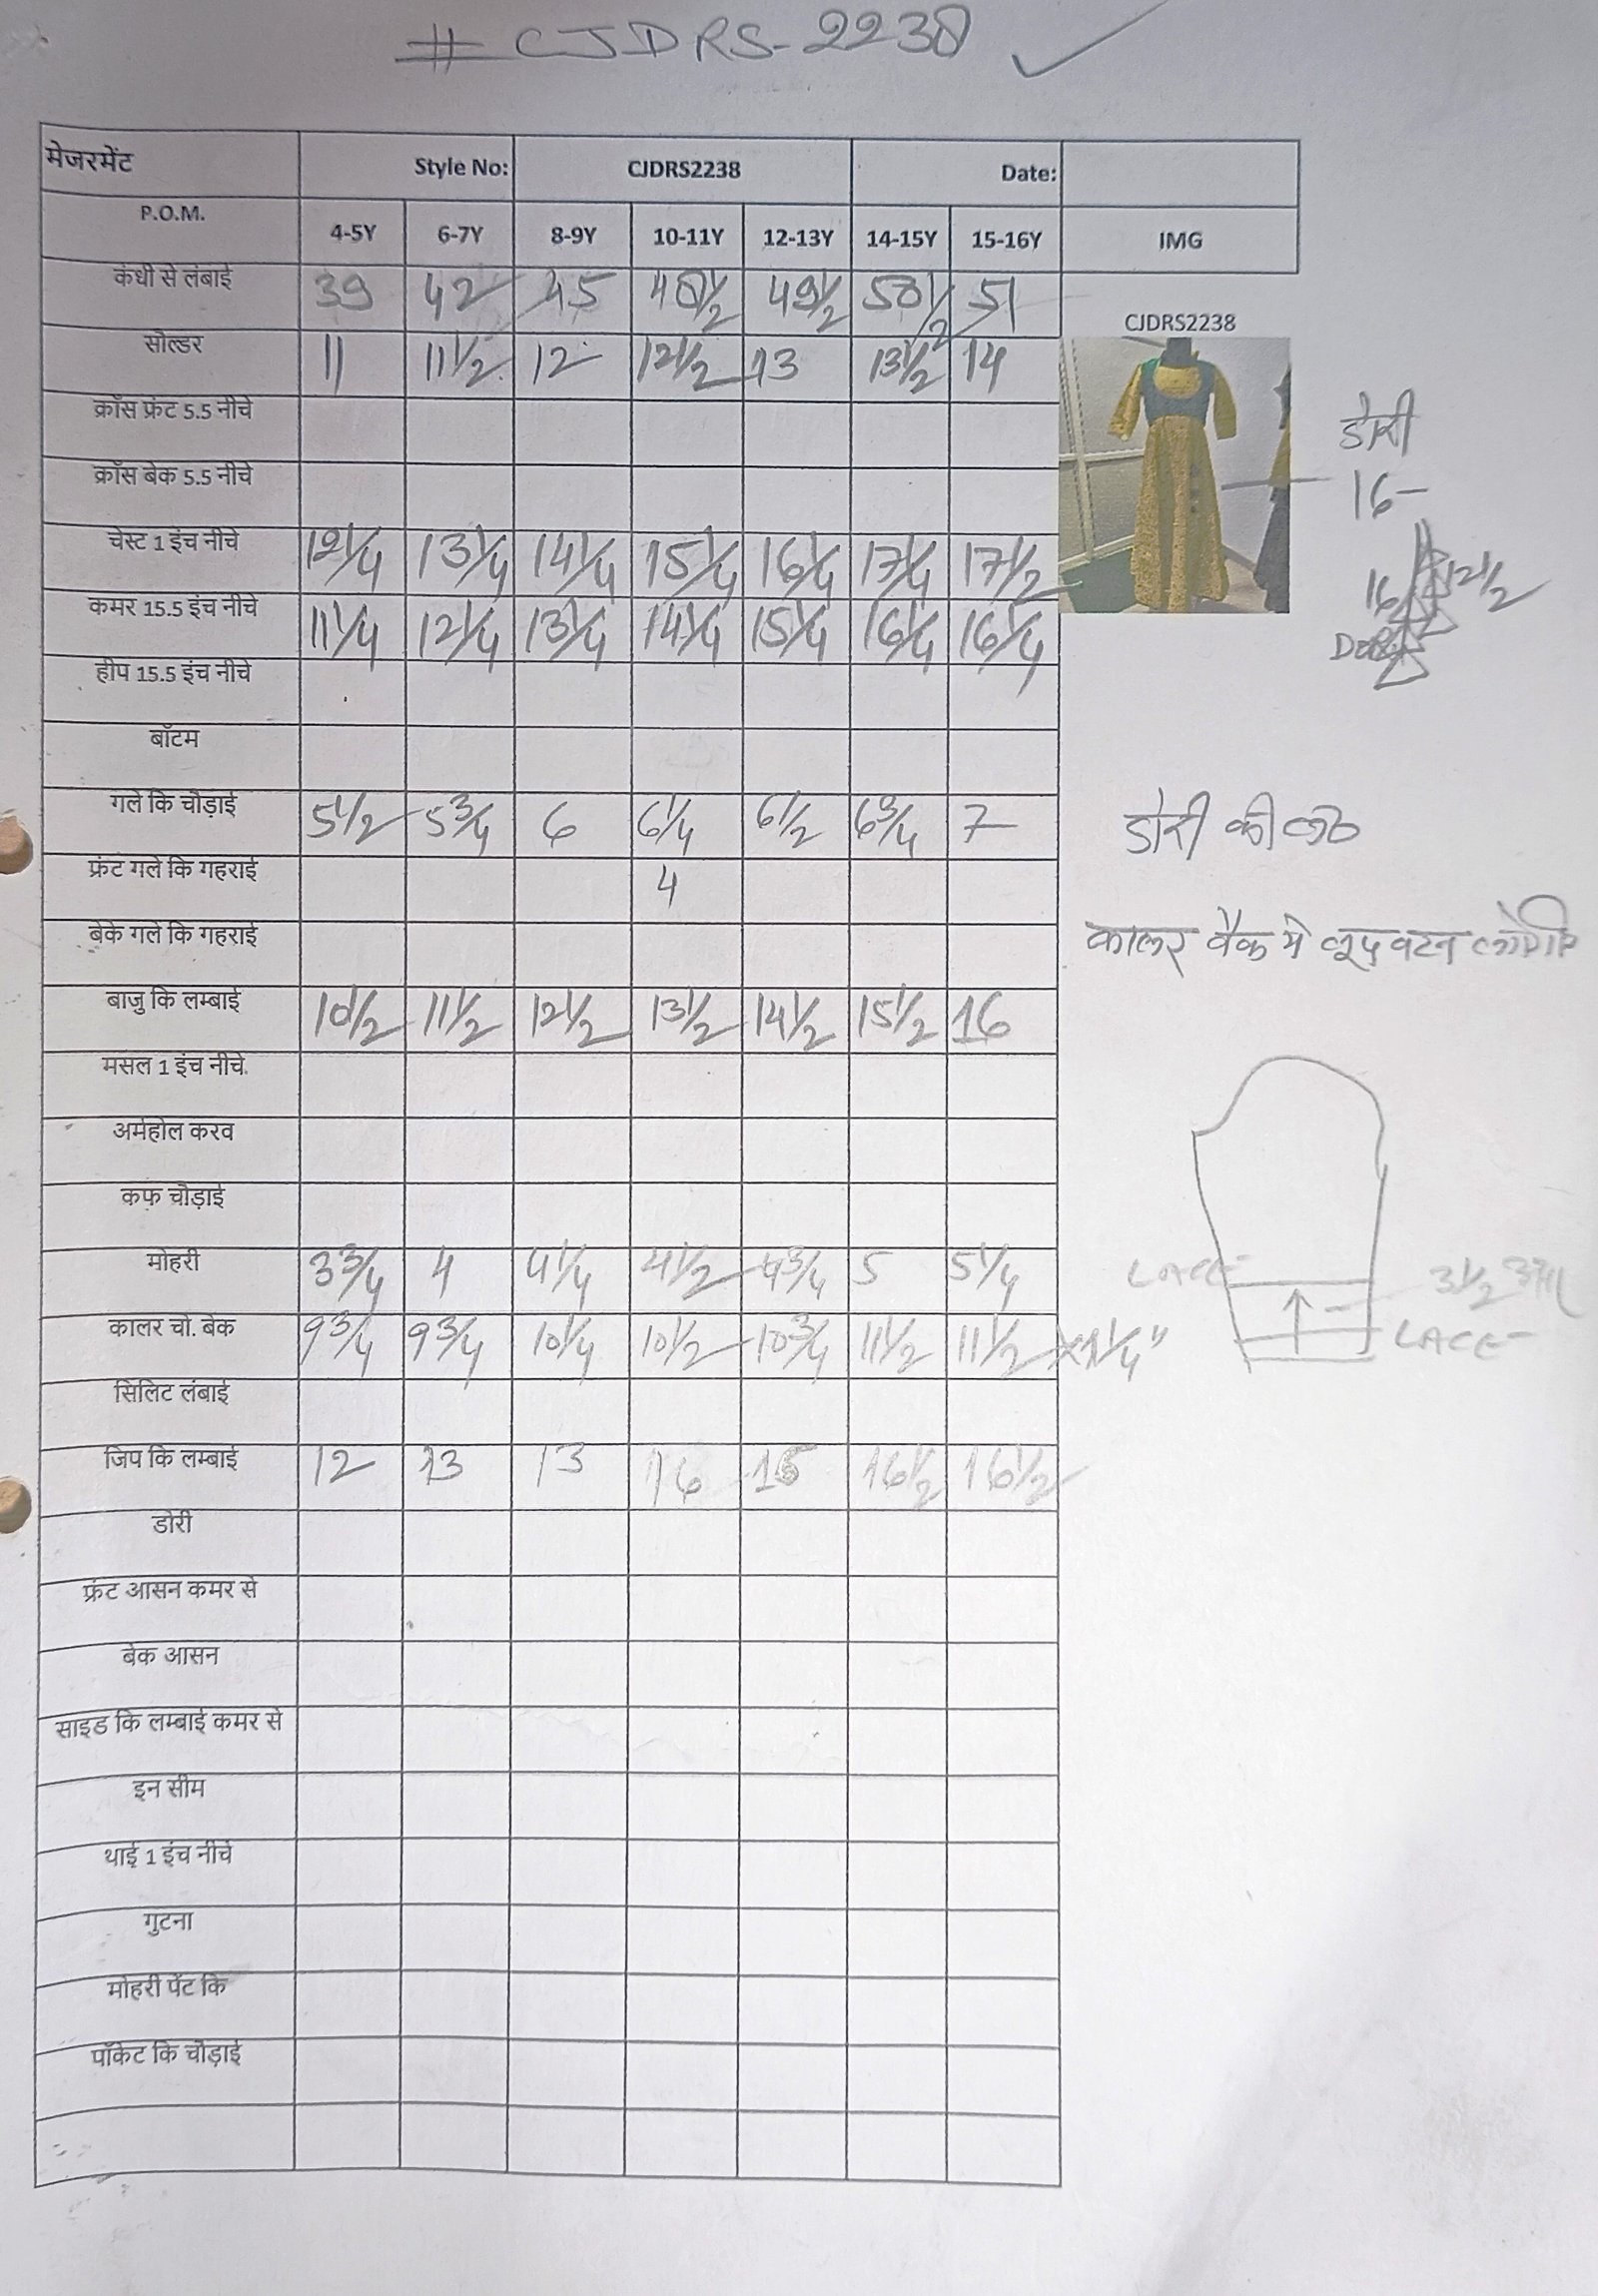 # CJDRS-2238 ✓
मेजरमेंट Style No: CJDRS2238 Date:
P.O.M. 4-5Y 6-7Y 8-9Y 10-11Y 12-13Y 14-15Y 15-16Y IMG
कंधी से लंबाई 39 42 45 48 1/2 49 1/2 50 1/2 51
CJDRS2238
सोल्डर 11 11 1/2 12 12 1/2 13 13 1/2 14
क्रॉस फ्रंट 5.5 नीचे
डोरी
क्रॉस बेक 5.5 नीचे
16-
चेस्ट 1 इंच नीचे 12 1/4 13 1/4 14 1/4 15 1/4 16 1/4 17 1/4 17 1/2
16 12 1/2
कमर 15.5 इंच नीचे 11 1/4 12 1/4 13 1/4 14 1/4 15 1/4 16 1/4 16 1/4
हीप 15.5 इंच नीचे
बॉटम
गले कि चौड़ाई 5 1/2 5 3/4 6 6 1/4 6 1/2 6 3/4 7
डोरी की
फ्रंट गले कि गहराई 4
बेक गले कि गहराई
कालर बैक मे बटन
बाजु कि लम्बाई 10 1/2 11 1/2 12 1/2 13 1/2 14 1/2 15 1/2 16
मसल 1 इंच नीचे
अर्महोल करव
कफ चौड़ाई
मोहरी 3 3/4 4 4 1/4 4 1/2 4 3/4 5 5 1/4
LACE 3 1/2
कालर चो. बेक 9 3/4 9 3/4 10 1/4 10 1/2 10 3/4 11 1/2 11 1/2 x 1 1/4"
LACE
सिलिट लंबाई
जिप कि लम्बाई 12 13 13 16 15 16 1/2 16 1/2
डोरी
फ्रंट आसन कमर से
बेक आसन
साइड कि लम्बाई कमर से
इन सीम
थाई 1 इंच नीचे
गुटना
मोहरी पेंट कि
पॉकेट कि चौड़ाई